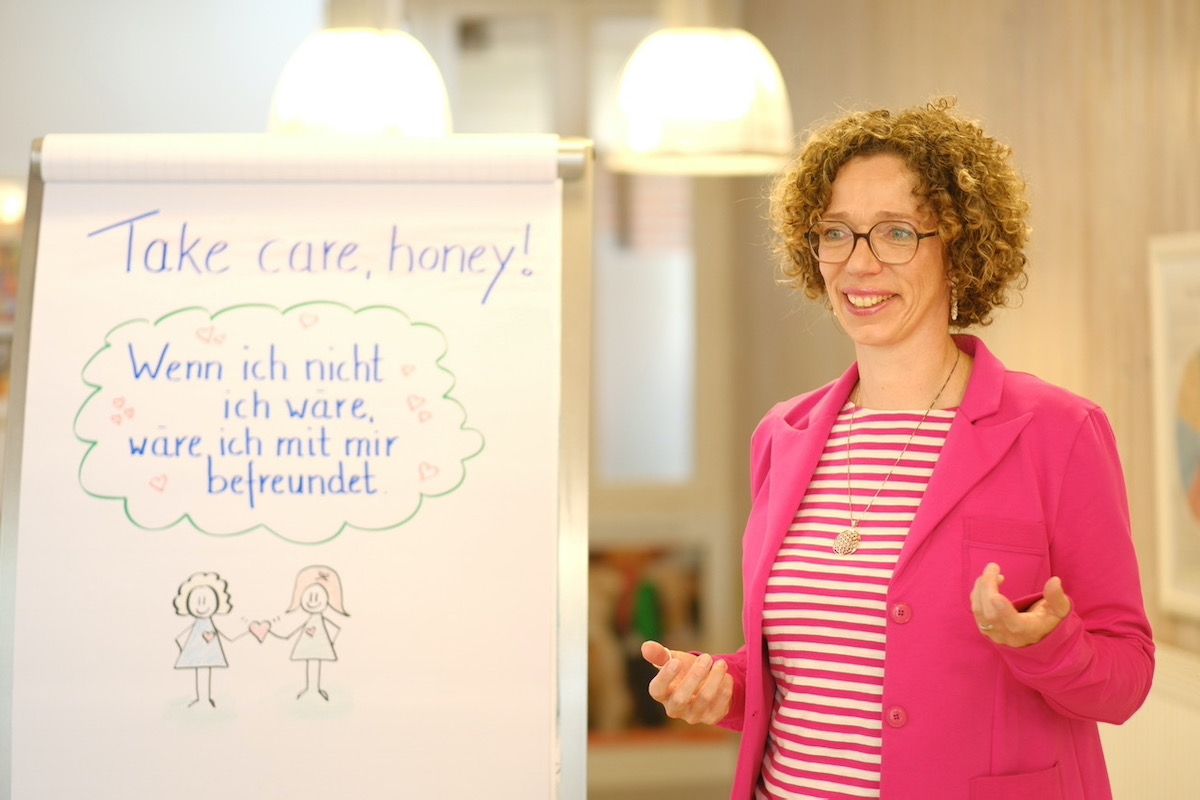 Take care, honey!
Wenn ich nicht
ich wäre,
wäre ich mit mir
befreundet.